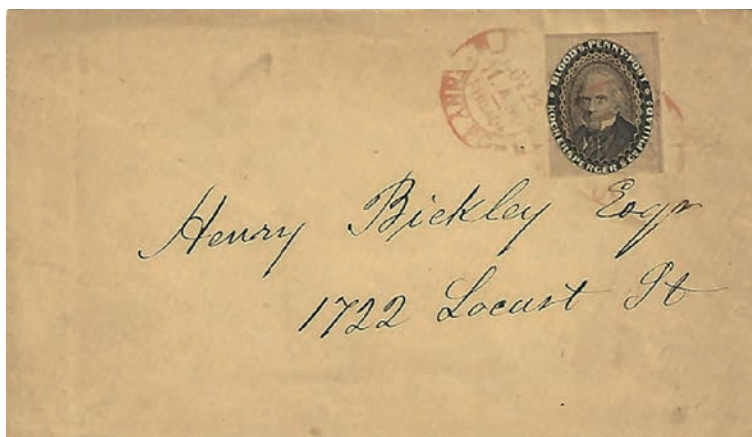 BLOOD'S PENNY POST
KOCHERSPERGER & CO PHILADA
Henry Bickley Esqr
1722 Locust St